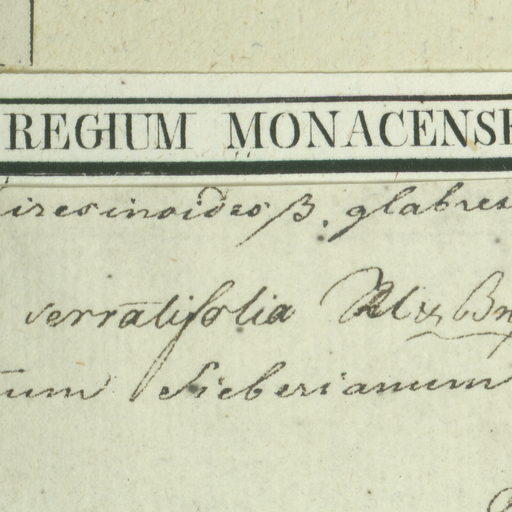 REGIUM MONACENSE
iresinoides β. glabres
serratifolia
um Sieberianum